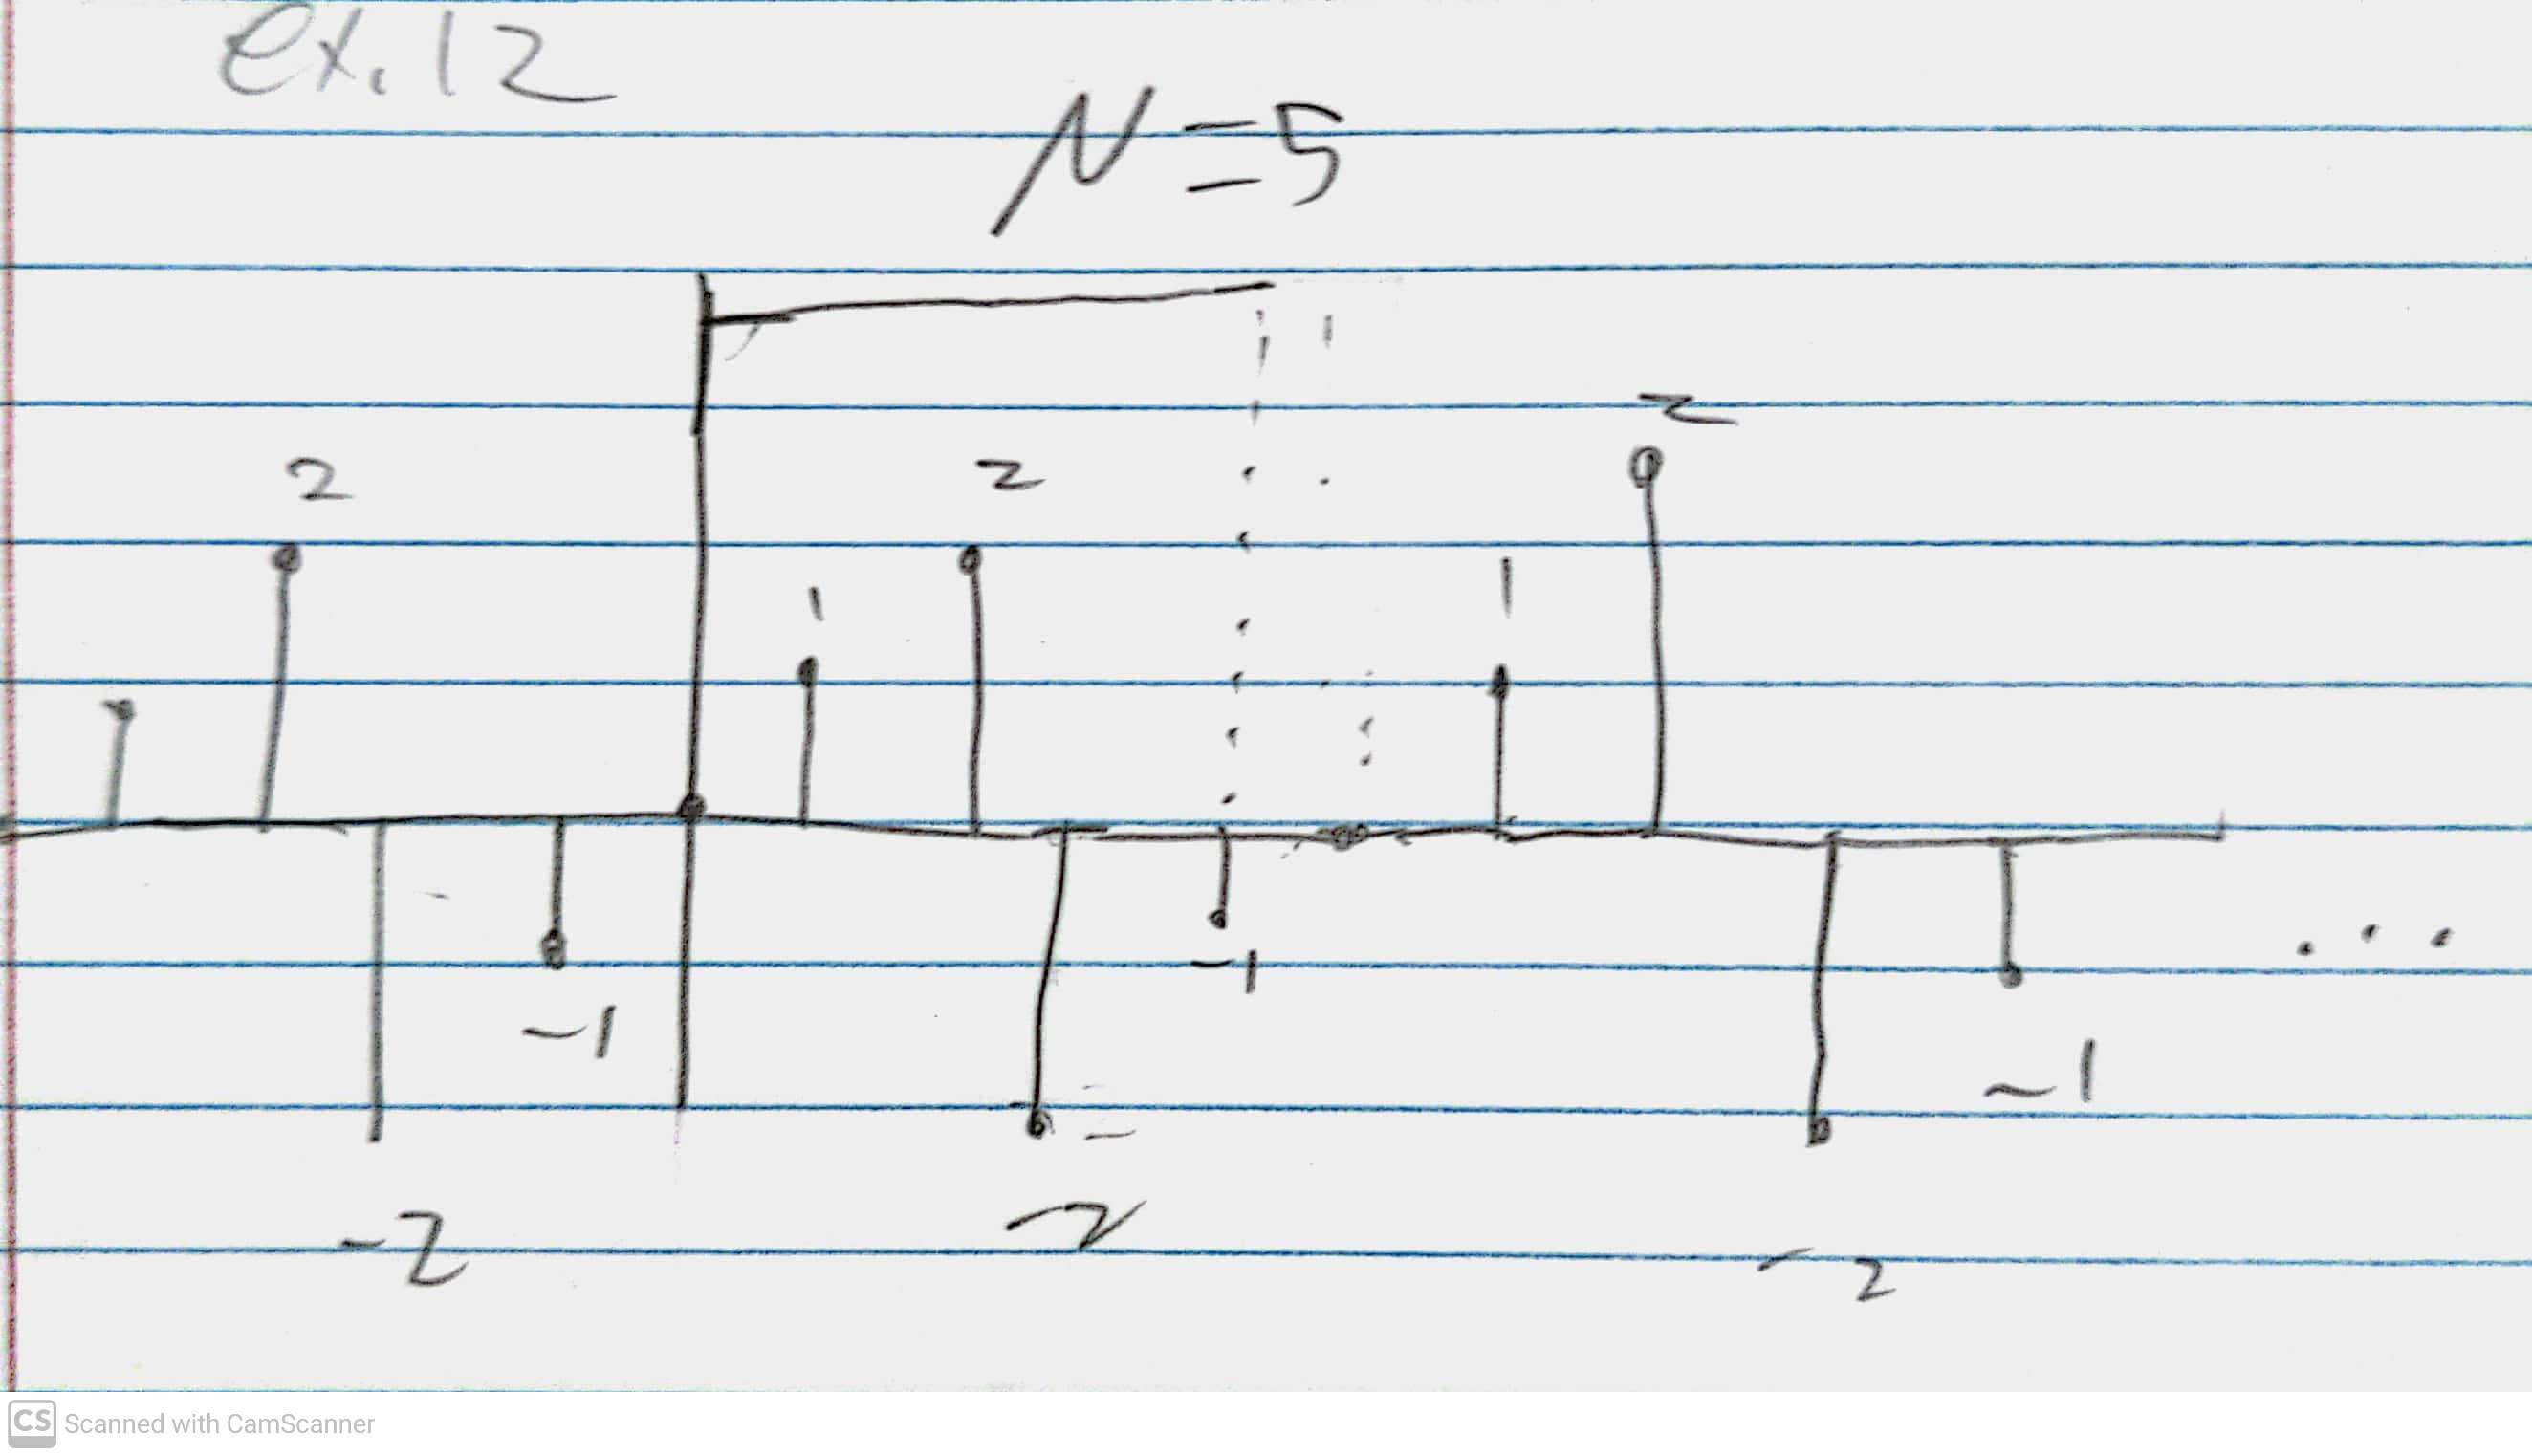 ex. 12
N = 5
2
2
2
1
1
-1
-1
-1
-2
-2
-2
...
CS Scanned with CamScanner